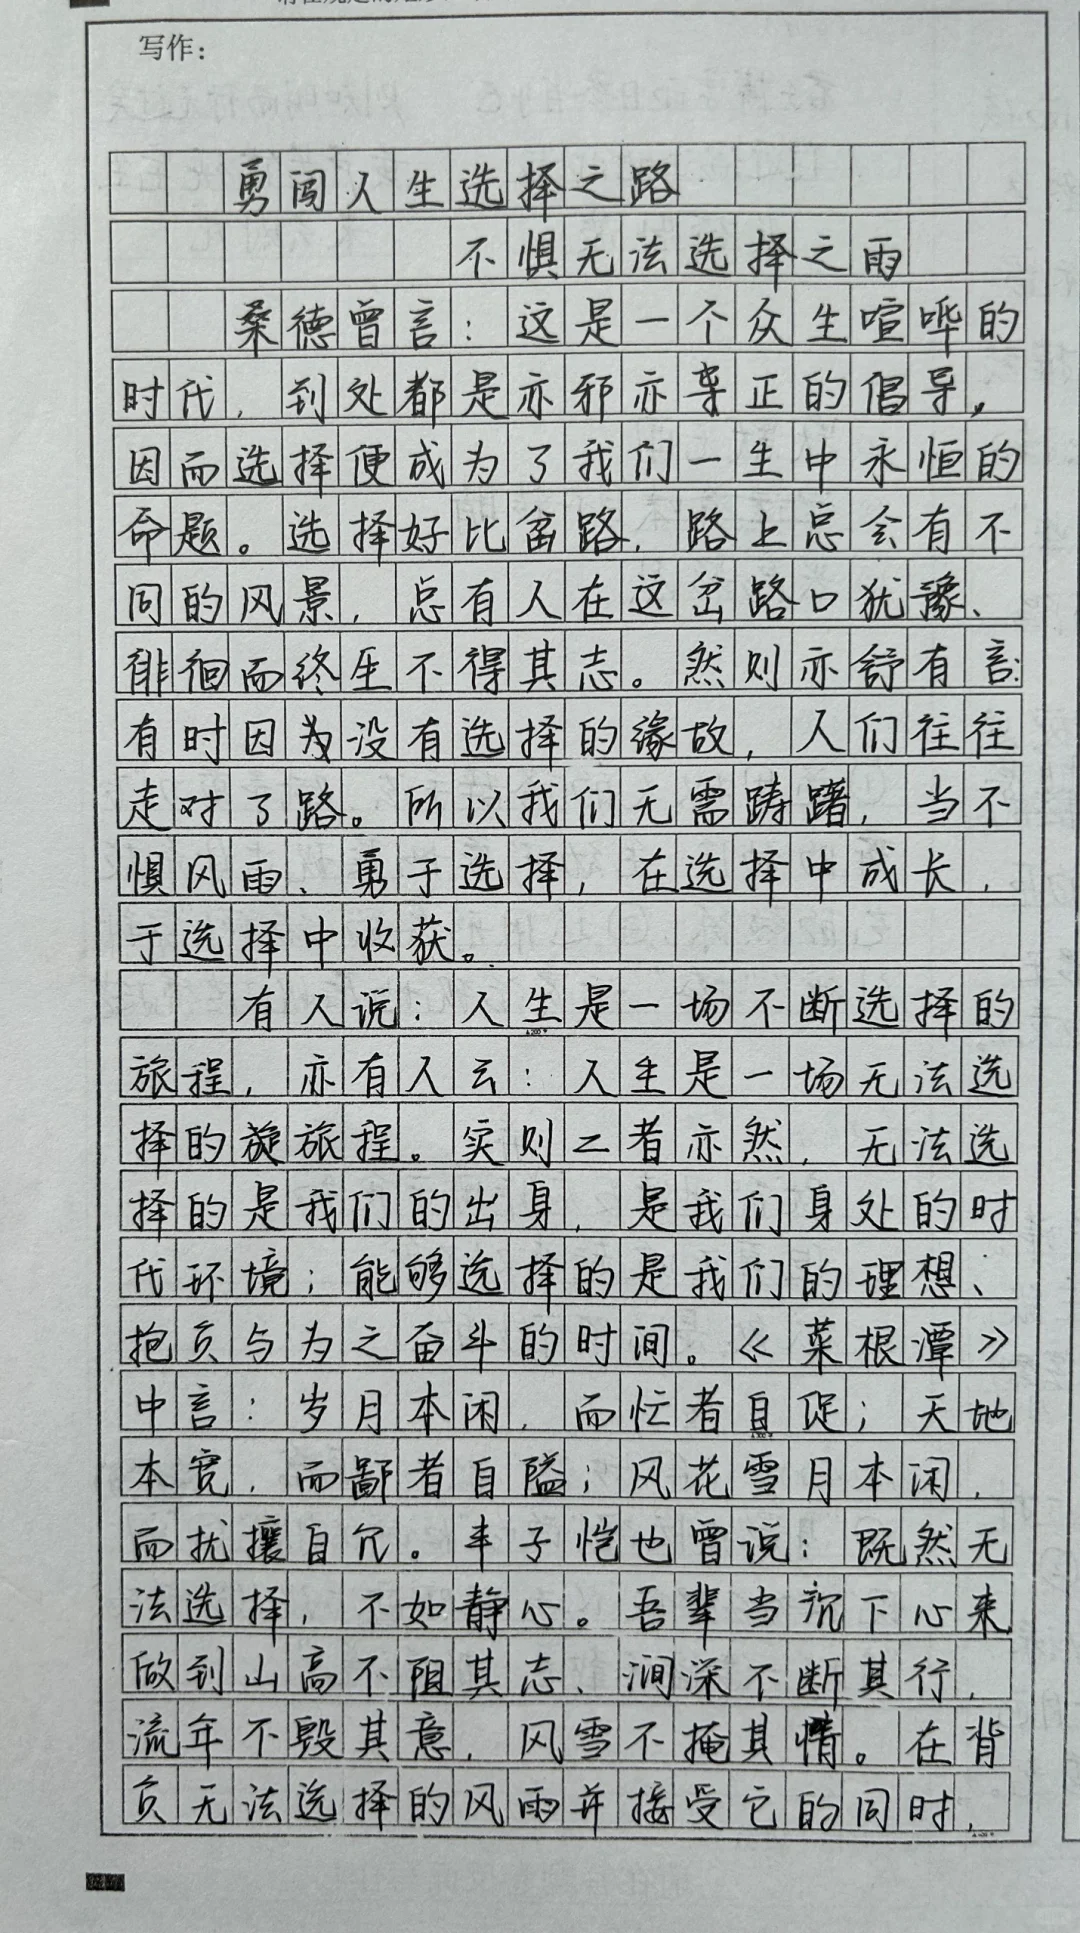 写作：
勇闯人生选择之路
不惧无法选择之雨
桑德曾言：这是一个众生喧哗的
时代，到处都是亦邪亦正的倡导，
因而选择便成为了我们一生中永恒的
命题。选择好比岔路，路上总会有不
同的风景，总有人在这岔路口犹豫、
徘徊而终生不得其志。然则亦舒有言：
有时因为没有选择的缘故，人们往往
走对了路。所以我们无需踌躇，当不
惧风雨、勇于选择，在选择中成长，
于选择中收获。
有人说：人生是一场不断选择的
旅程，亦有人云：人生是一场无法选
择的旅程。实则二者亦然，无法选
择的是我们的出身，是我们身处的时
代环境；能够选择的是我们的理想、
抱负与为之奋斗的时间。《菜根潭》
中言：岁月本闲，而忙者自促；天地
本宽，而鄙者自隘；风花雪月本闲，
而扰攘自冗。丰子恺也曾说：既然无
法选择，不如静心。吾辈当沉下心来
做到山高不阻其志、涧深不断其行，
流年不毁其意，风雪不掩其情。在背
负无法选择的风雨并接受它的同时，